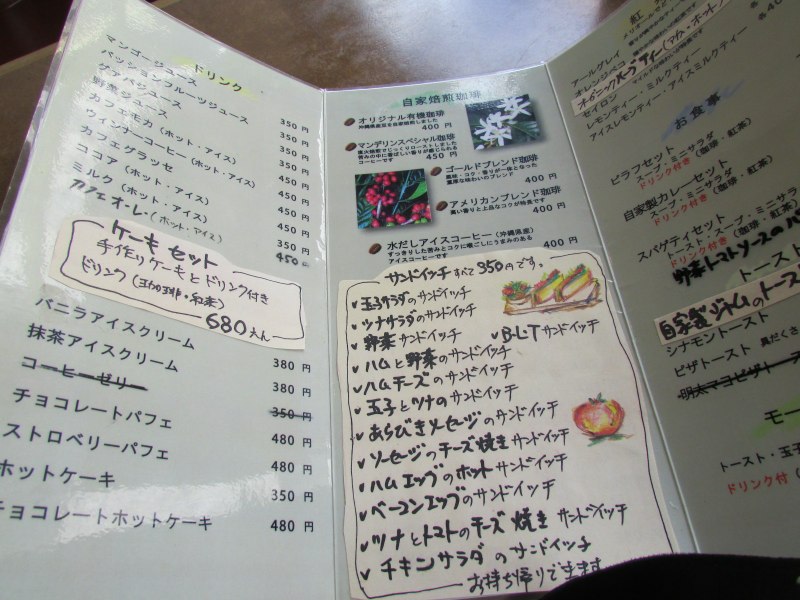 ドリンク
マンゴージュース
パッションフルーツジュース 350 円
グァバジュース 350 円
野菜ジュース 350 円
カフェモカ（ホット・アイス） 450 円
ウィンナーコーヒー（ホット・アイス） 450 円
カフェグラッセ 450 円
ココア（ホット・アイス） 450 円
ミルク（ホット・アイス） 350 円
カフェオーレ（ホット・アイス） 450
ケーキセット
手作りケーキとドリンク付き
ドリンク（珈琲・紅茶）
680えん
バニラアイスクリーム 380 円
抹茶アイスクリーム 380 円
コーヒーゼリー 350 円
チョコレートパフェ 480 円
ストロベリーパフェ 480 円
ホットケーキ 350 円
チョコレートホットケーキ 480 円
自家焙煎珈琲
オリジナル有機珈琲
沖縄県産豆を自家焙煎しました
400 円
マンデリンスペシャル珈琲
直火焙煎でじっくりローストしました
苦みの中に香ばしい香りが感じられる
コーヒーです
450 円
ゴールドブレンド珈琲
風味・コク・香りが一体となった
重厚な味わいのブレンド
400 円
アメリカンブレンド珈琲
高い香りと上品なコクが特長です
400 円
水だしアイスコーヒー（沖縄県産）
すっきりした苦みとコクに喉ごしにうまみのある
アイスコーヒーです
400 円
サンドイッチすべて350円です。
玉子サラダのサンドイッチ
ツナサラダのサンドイッチ
野菜サンドイッチ
B・L・Tサンドイッチ
ハムと野菜のサンドイッチ
ハムチーズのサンドイッチ
玉子とツナのサンドイッチ
あらびきソーセージのサンドイッチ
ソーセージのチーズ焼きサンドイッチ
ハムエッグのホットサンドイッチ
ベーコンエッグのサンドイッチ
ツナとトマトのチーズ焼き サンドイッチ
チキンサラダのサンドイッチ
お持ち帰りできます
紅
アールグレイ
オレンジペコ
オーガニックハーブティー（アイス・ホット）
セイロン
レモンティー・ミルクティー
アイスレモンティー・アイスミルクティー
お食事
ピラフセット
スープ・ミニサラダ
ドリンク付き（珈琲・紅茶）
自家製カレーセット
スープ・ミニサラダ
ドリンク付き（珈琲・紅茶）
スパゲティセット
トースト・スープ・ミニサラダ
ドリンク付き（珈琲・紅茶）
野菜トマトソースの
トースト
自家製ジャムのトース
シナモントースト
ピザトースト 具だくさ
明太マヨピザトー
モー
トースト・玉子
ドリンク付（